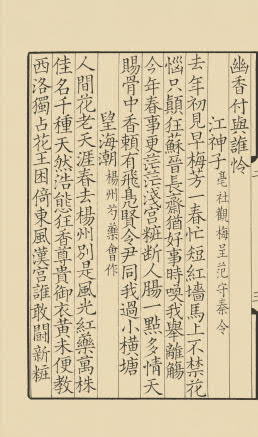 幽香付與誰怜
江神子 亳社觀梅呈范守秦令
去年初見早梅芳一春忙短紅牆馬上不禁花
惱只顛狂蘇晉長齋猶好事時喚我舉離觴
今年春事更茫茫淺宮粧斷人腸一點多情天
賜骨中香賴有飛鳧賢令尹同我過小橫塘
望海潮 楊州芍藥會作
人間花老天涯春去楊州別是風光紅藥萬株
佳名千種天然浩態狂香尊貴御衣黃未便教
西洛獨占花王困倚東風漢宮誰敢鬭新粧